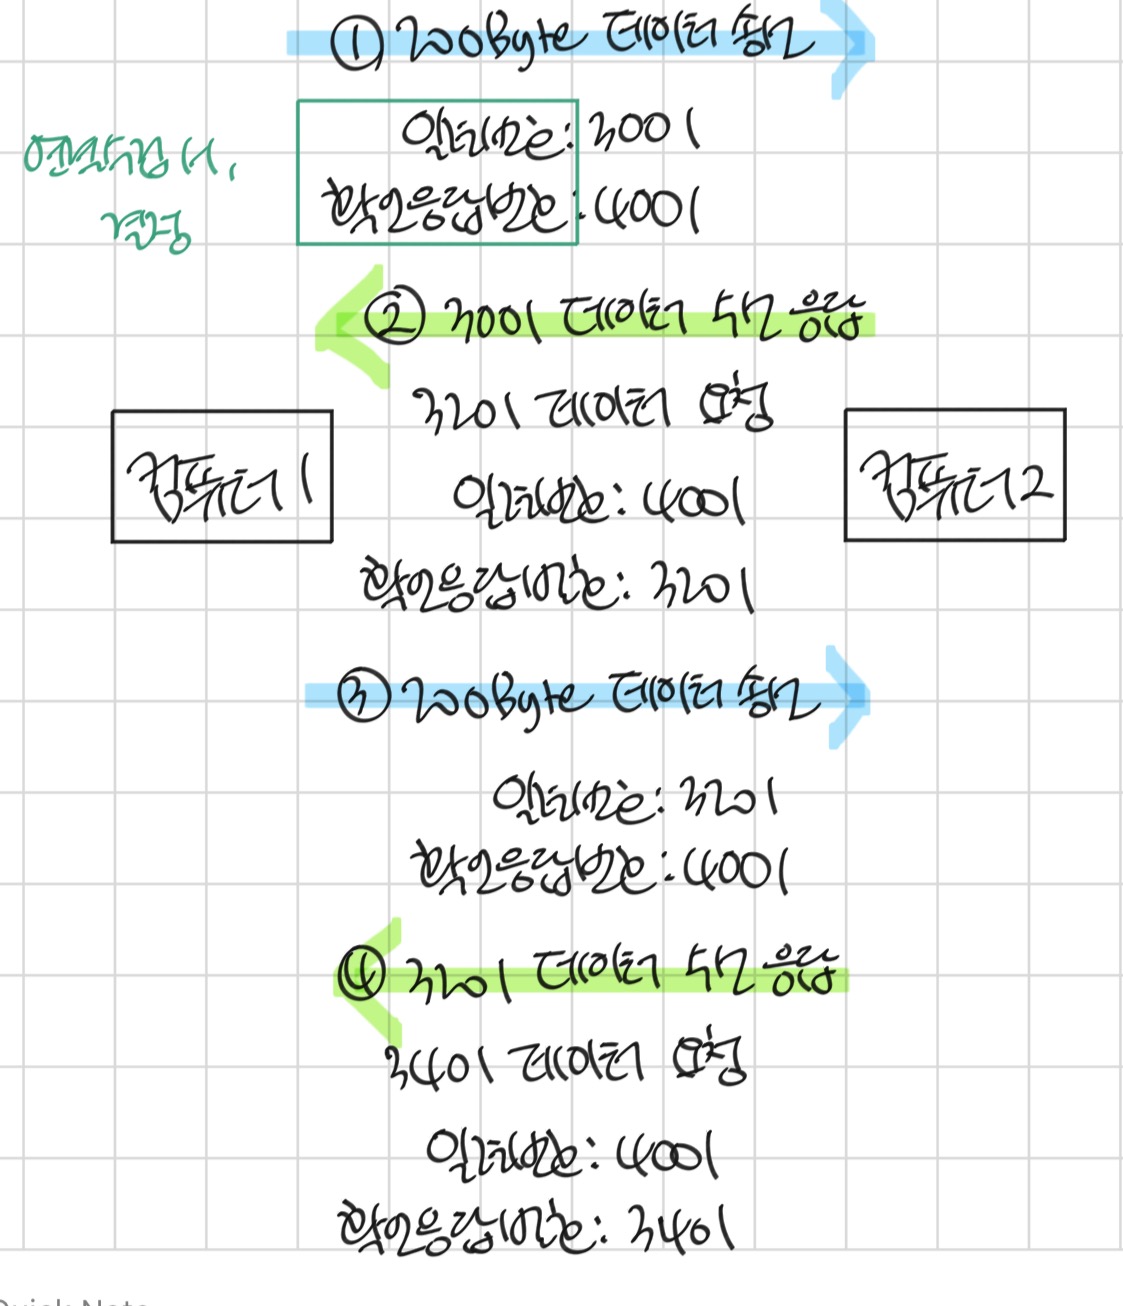 ① 200Byte 데이터 송신
일련번호: 3001
확인응답번호: 4001
연결수립 시,
결정
② 3001 데이터 수신 응답
3201 데이터 요청
일련번호: 4001
확인응답번호: 3201
컴퓨터1
컴퓨터2
③ 200Byte 데이터 송신
일련번호: 3201
확인응답번호: 4001
④ 3201 데이터 수신 응답
3401 데이터 요청
일련번호: 4001
확인응답번호: 3401